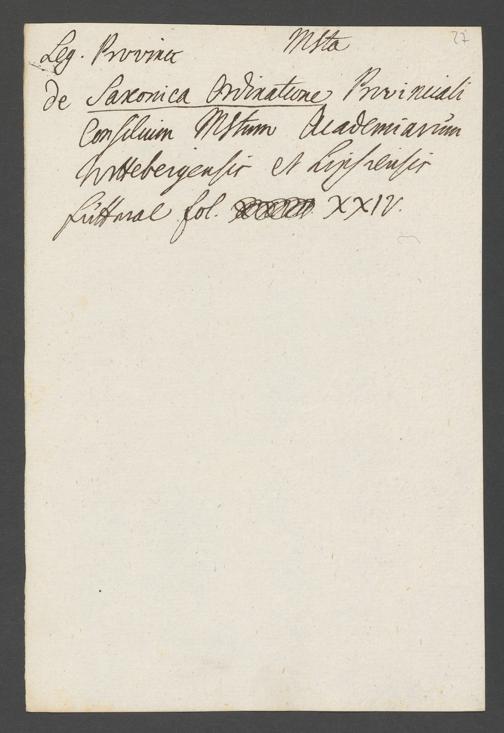 Leg. Provinc Msta 27
de Saxonica Ordinatione Provinciali
Consilium Mstum Academiarum
Wittebergensis et Lipsiensis
futtural fol. XXIV.